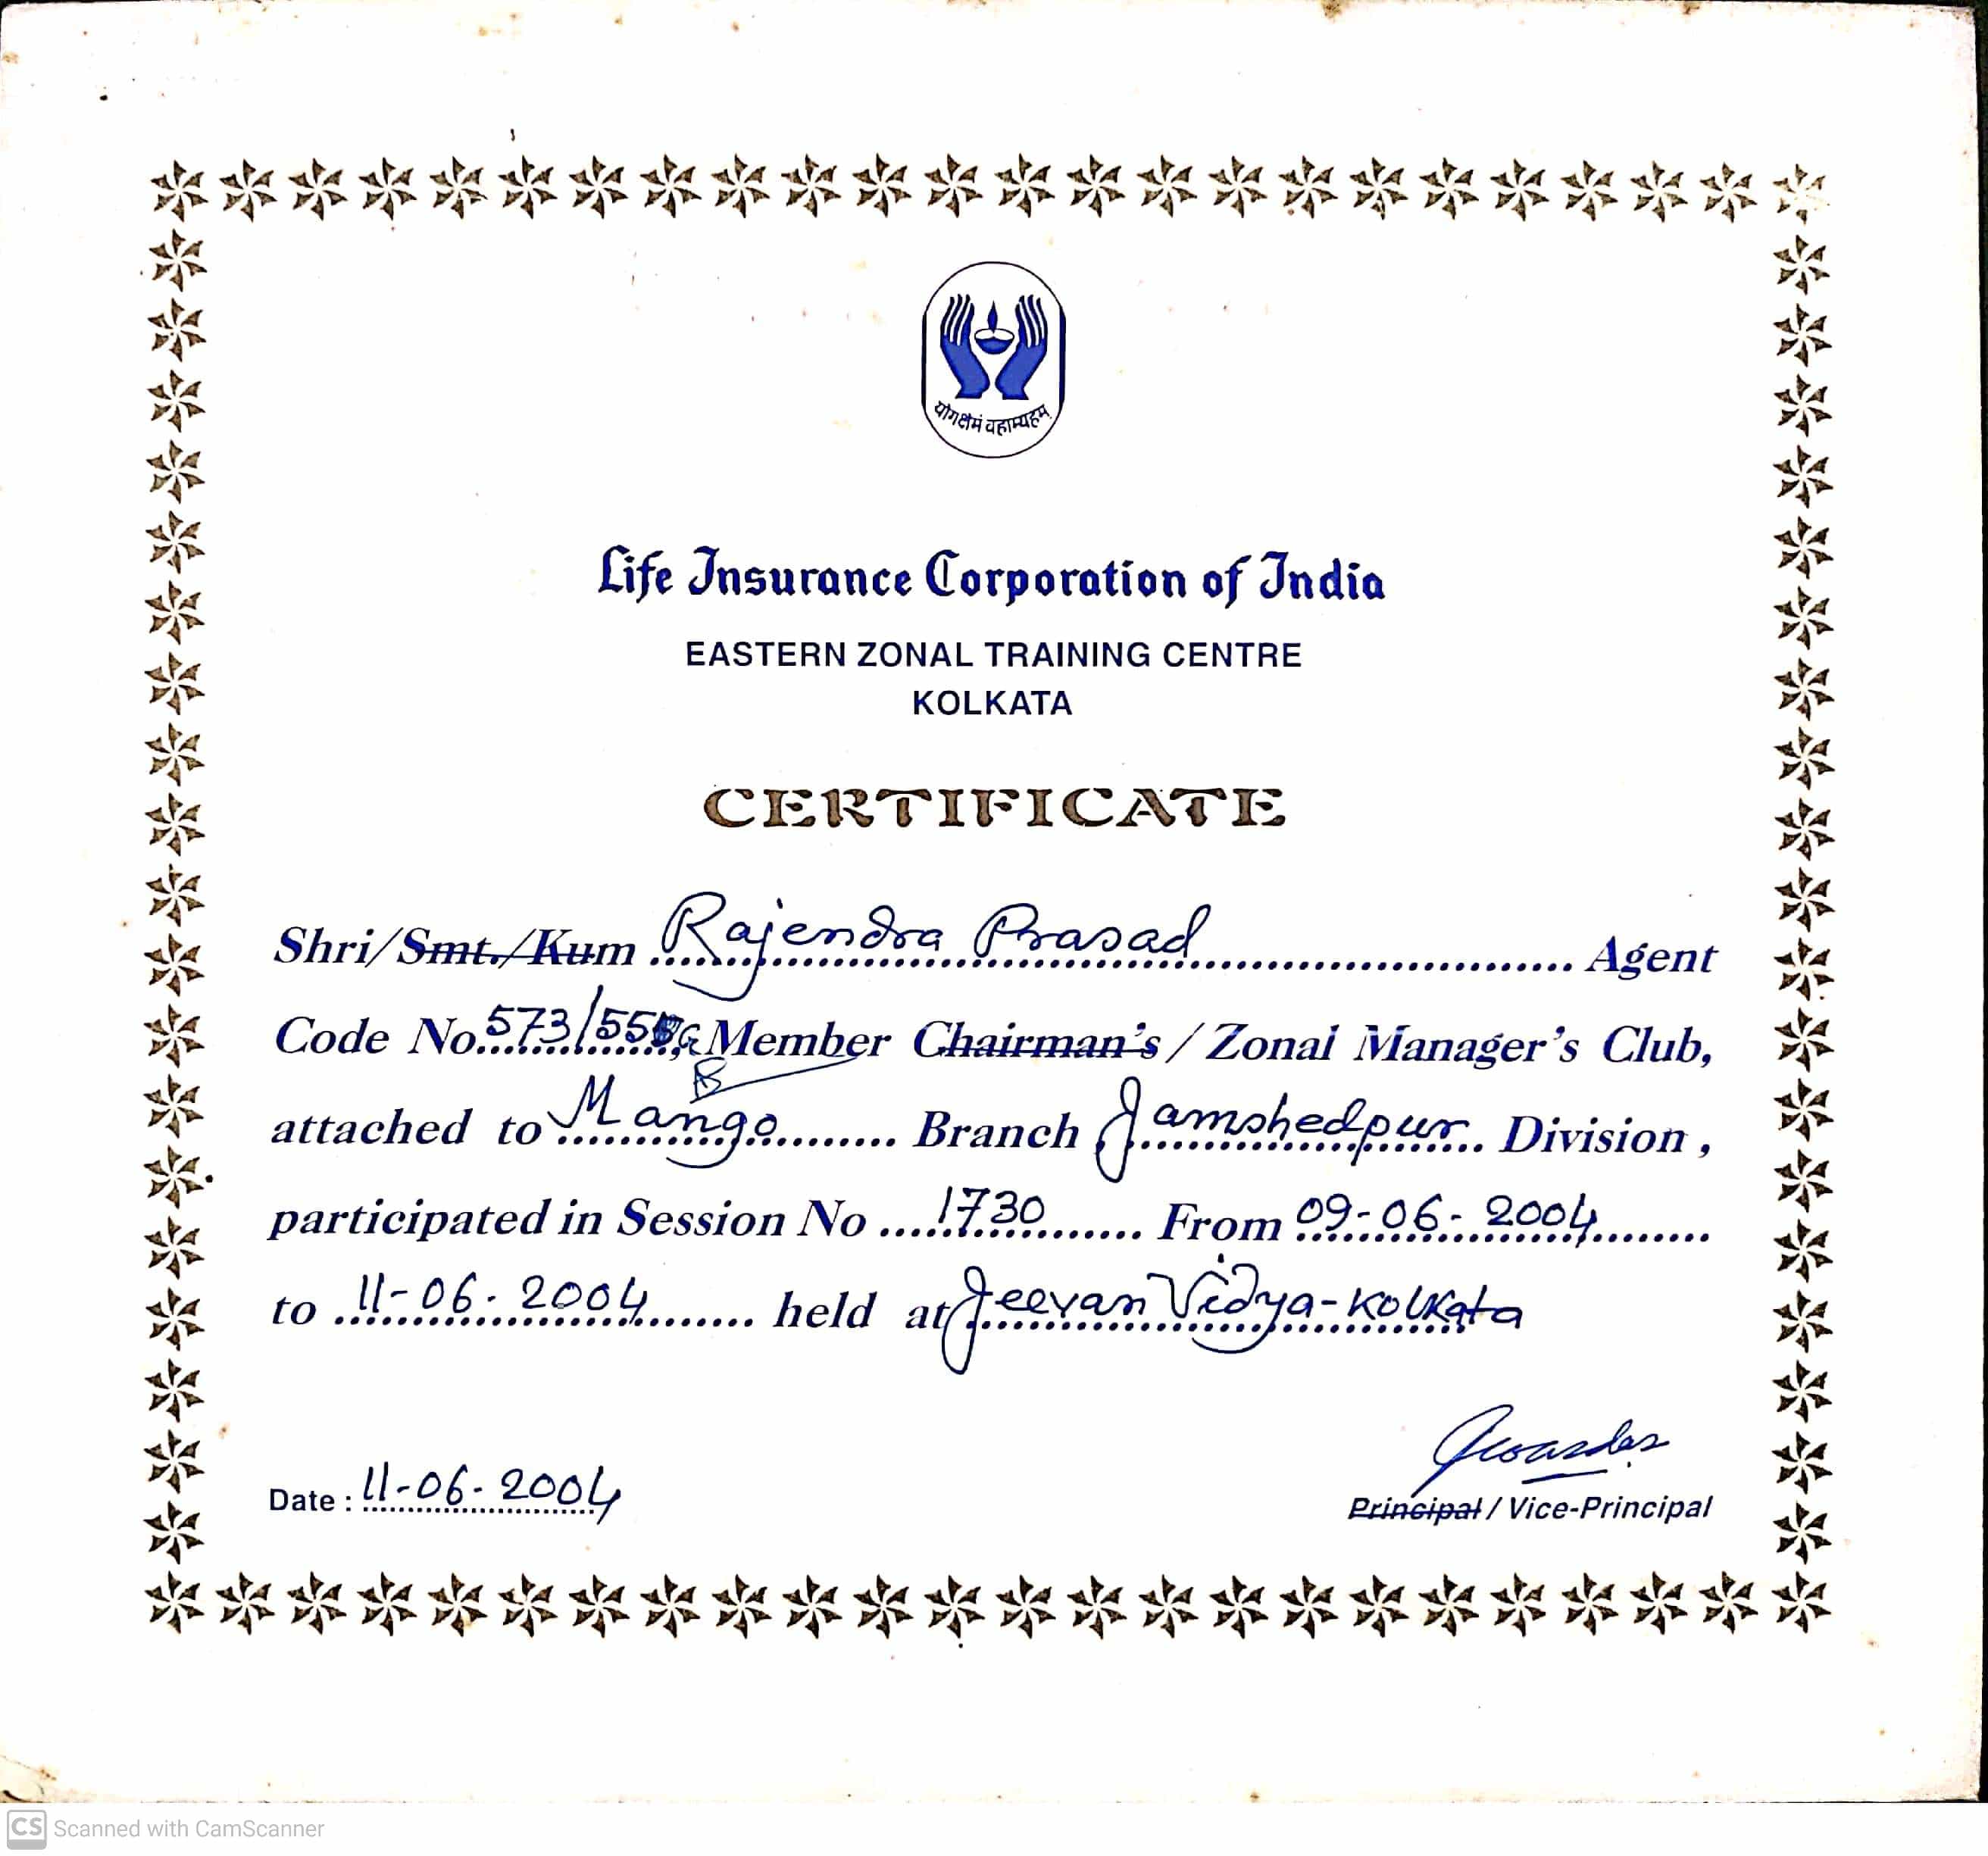 योगक्षेमं वहाम्यहम्
Life Insurance Corporation of India
EASTERN ZONAL TRAINING CENTRE
KOLKATA
CERTIFICATE
Shri/Smt./Kum Rajendra Prasad Agent
Code No. 573/55 Member Chairman's / Zonal Manager's Club,
attached to Mango Branch Jamshedpur Division,
participated in Session No 1730 From 09-06-2004
to 11-06-2004 held at Jeevan Vidya-Kolkata
Date : 11-06-2004
Principal / Vice-Principal
CS Scanned with CamScanner